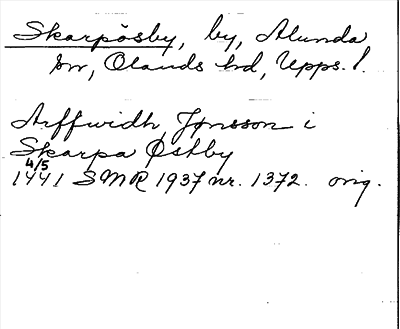 Skarpösby, by, Alunda
sn, Olands hd, Upps. l.
Arffwidh Jønsson i
Skarpa Østby
4/5
1441 SMR 1937 nr. 1372. orig.